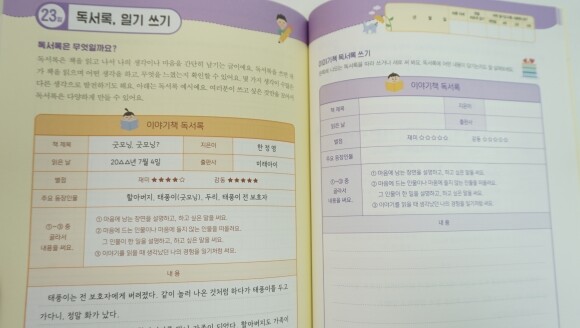 23일 독서록, 일기 쓰기
독서록은 무엇일까요?
독서록은 책을 읽고 나서 나의 생각이나 마음을 간단히 남기는 글이에요. 독서록을 쓰면
가 책을 읽으며 어떤 생각을 하고, 무엇을 느꼈는지 확인할 수 있어요. 몇 가지 생각이
다른 생각으로 발전하기도 해요. 아래는 독서록 예시예요. 여러분이 쓰고 싶은 장면을
독서록은 다양하게 만들 수 있어요.
이야기책 독서록
책 제목 굿모닝, 굿모닝? 지은이 한정영
읽은 날 20△△년 7월 4일 출판사 미래아이
별점 재미 ★★★★☆ 감동 ★★★★★
주요 등장인물 할아버지, 태풍이(굿모닝), 두리, 태풍이 전 보호자
①~③ 중
골라서
내용을 써요.
① 마음에 남는 장면을 설명하고, 하고 싶은 말을 써요.
② 마음에 드는 인물이나 마음에 들지 않는 인물을 떠올려요.
그 인물이 한 일을 설명하고, 하고 싶은 말을 써요.
③ 이야기를 읽을 때 생각났던 나의 경험을 일기처럼 써요.
내용
태풍이는 전 보호자에게 버려졌다. 같이 놀러 나온 것처럼 하다가 태풍이를 두고
가다니, 정말 화가 났다.
가족이 되었다. 할아버지도 가족이
월 일
이야기책 독서록 쓰기
이야기책 독서록
책 제목 지은이
읽은 날 출판사
별점 재미 ☆☆☆☆☆ 감동 ☆☆☆☆☆
주요 등장인물
①~③ 중
골라서
내용을 써요.
① 마음에 남는 장면을 설명하고, 하고 싶은 말을 써요.
② 마음에 드는 인물이나 마음에 들지 않는 인물을 떠올려요.
그 인물이 한 일을 설명하고, 하고 싶은 말을 써요.
③ 이야기를 읽을 때 생각났던 나의 경험을 일기처럼 써요.
내용